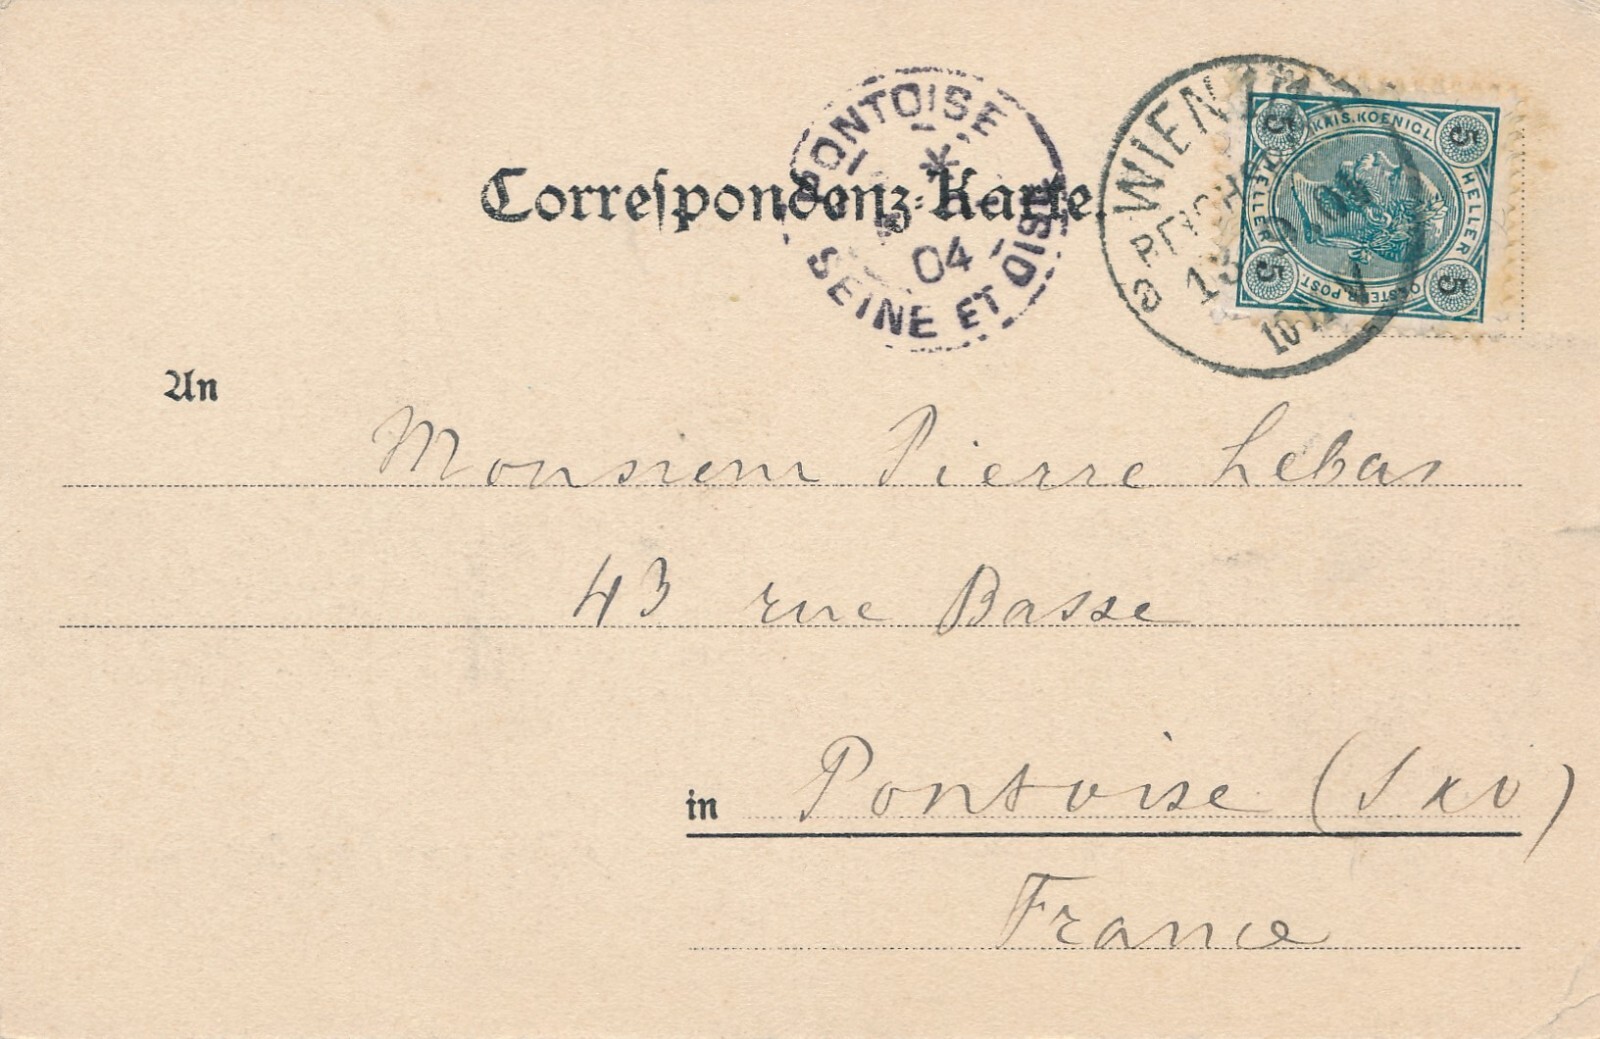 Correſpondenz-Karte.
PONTOISE
04
SEINE ET OISE
WIEN
a
KAIS. KOENIGL.
HELLER
HELLER
OESTERR. POST.
5
5
5
5
An
Monsieur Pierre Lebas
43 rue Basse
in Pontoise (S x O)
France